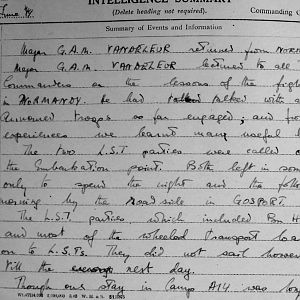 INTELLIGENCE SUMMARY
(Delete heading not required).
Commanding O
Summary of Events and Information
Major G.A.M. VANDELEUR returned from NORM
Major G.A.M. VANDELEUR lectured to all
Commanders on the lessons of the figh
in NORMANDY. He had talked with
Armoured troops so far engaged; and fro
experiences we learnt many useful l
The two L.S.T. parties were called
the Embarkation point. Both left in
only to spend the night and the foll
morning by the road side in GOSPORT.
The L.S.T. parties which included Bn H
and most of the wheeled transport loa
on to L.S.Ts. They did not sail however
till the next day.
Though our stay in Camp A14 was long